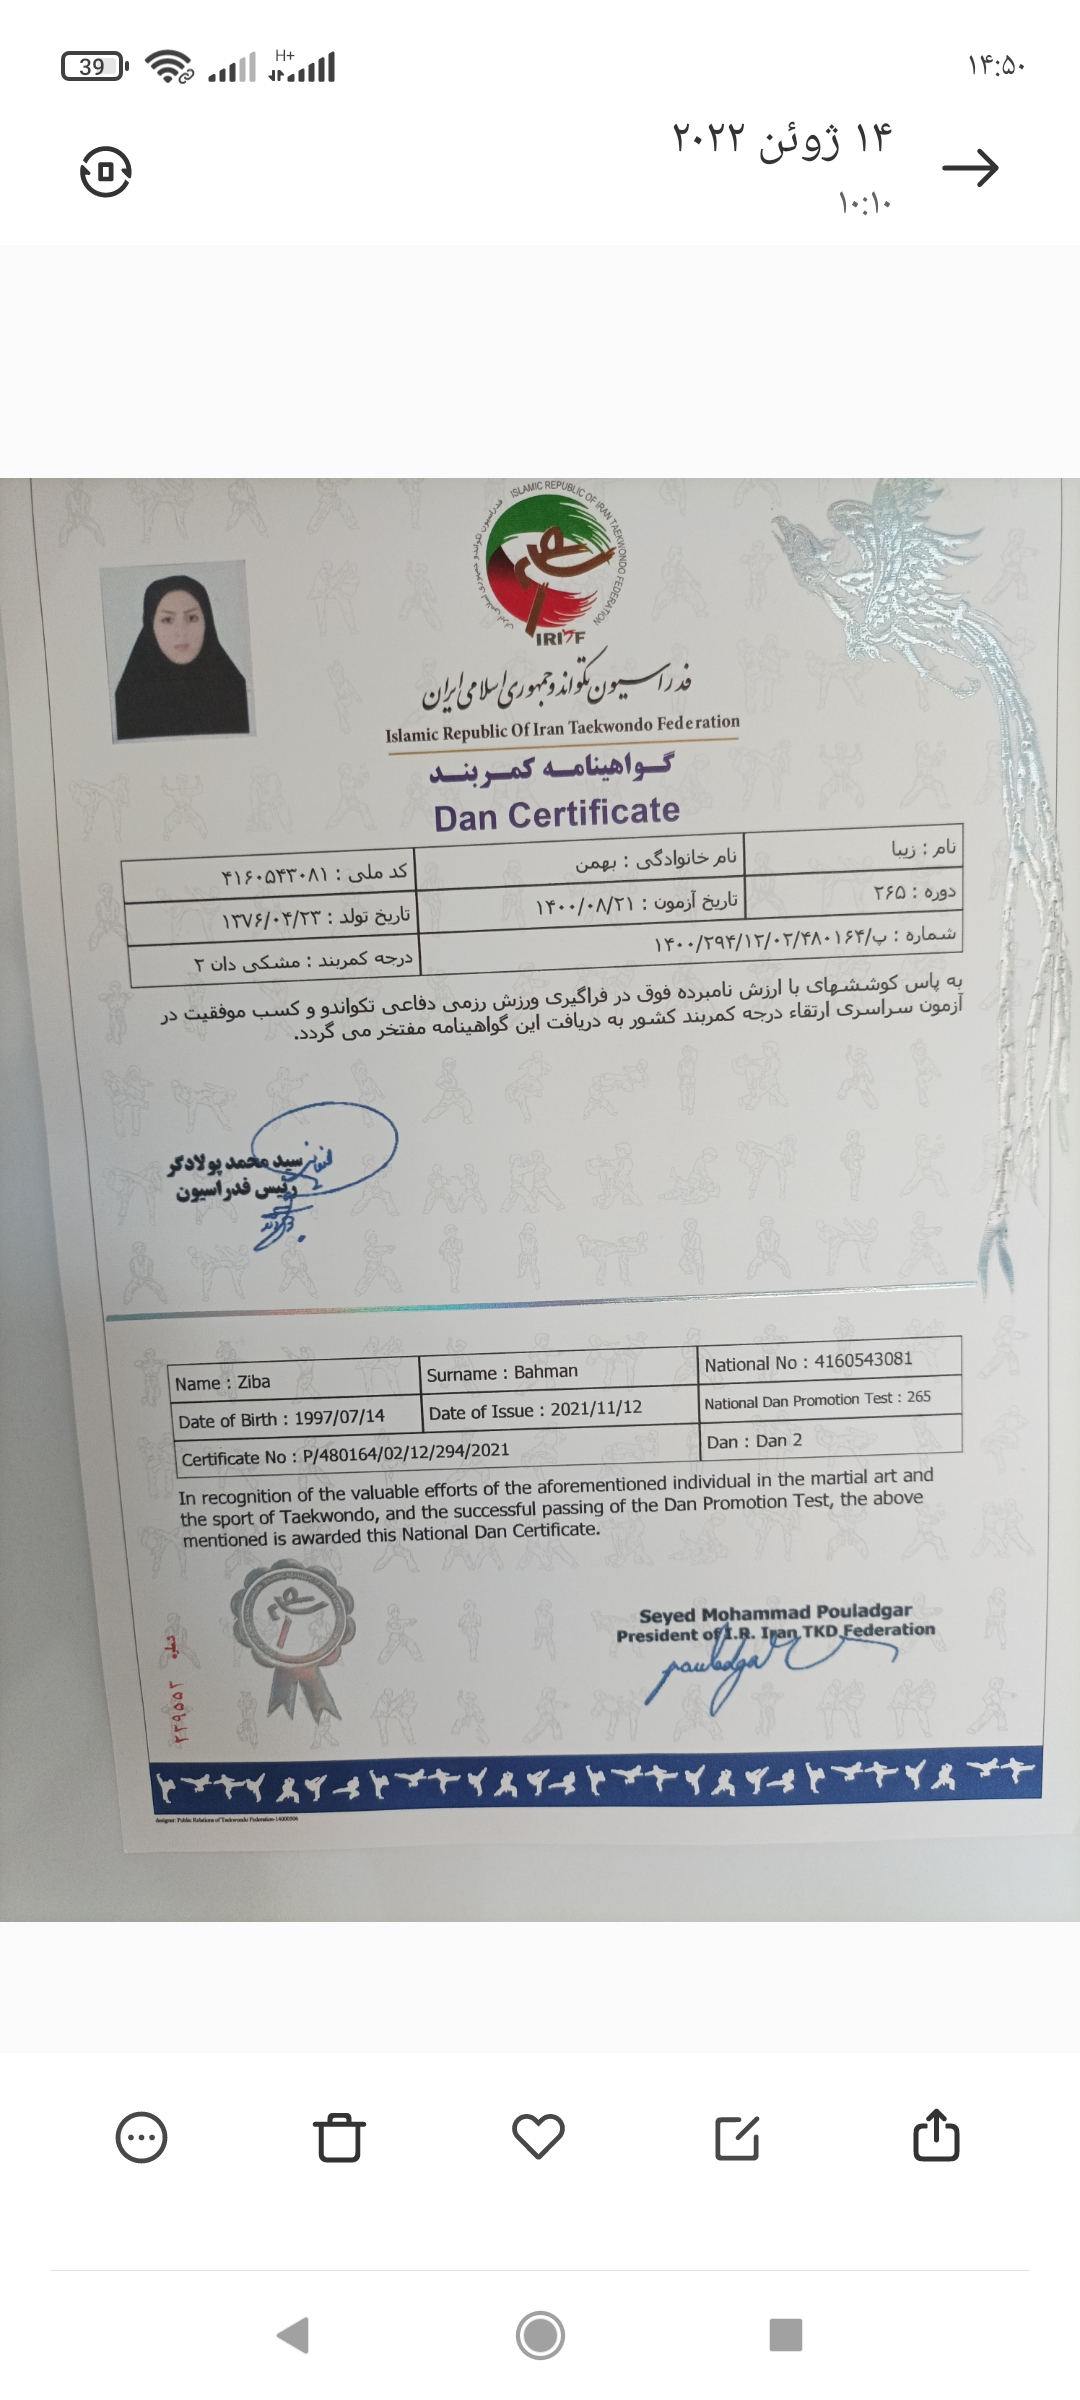 39
H+
۱۴:۵۰
۱۴ ژوئن ۲۰۲۲
۱۰:۱۰
ISLAMIC REPUBLIC OF IRAN TAEKWONDO FEDERATION
فدراسیون تکواندو جمهوری اسلامی ایران
IRITF
فدراسیون تکواندو جمهوری اسلامی ایران
Islamic Republic Of Iran Taekwondo Federation
گواهینامه کمربند
Dan Certificate
نام : زیبا
نام خانوادگی : بهمن
کد ملی : ۴۱۶۰۵۴۳۰۸۱
دوره : ۲۶۵
تاریخ آزمون : ۱۴۰۰/۰۸/۲۱
تاریخ تولد : ۱۳۷۶/۰۴/۲۳
شماره : پ/۱۴۰۰/۲۹۴/۱۲/۰۲/۴۸۰۱۶۴
درجه کمربند : مشکی دان ۲
به پاس کوششهای با ارزش نامبرده فوق در فراگیری ورزش رزمی دفاعی تکواندو و کسب موفقیت در
آزمون سراسری ارتقاء درجه کمربند کشور به دریافت این گواهینامه مفتخر می گردد.
سید محمد پولادگر
رئیس فدراسیون
Name : Ziba
Surname : Bahman
National No : 4160543081
Date of Birth : 1997/07/14
Date of Issue : 2021/11/12
National Dan Promotion Test : 265
Certificate No : P/480164/02/12/294/2021
Dan : Dan 2
In recognition of the valuable efforts of the aforementioned individual in the martial art and
the sport of Taekwondo, and the successful passing of the Dan Promotion Test, the above
mentioned is awarded this National Dan Certificate.
Seyed Mohammad Pouladgar
President of I.R. Iran TKD Federation
pouladgar
۲۳۹۵۵۲
designer: Public Relations of Taekwondo Federation-14000906